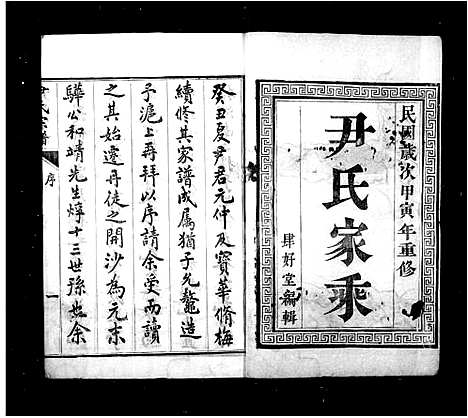 民國歲次甲寅年重修
尹氏家乘
肆好堂編輯
癸丑夏尹君元仲及寶華脩梅
續修其家譜成屬猶子允鼇造
予滬上再拜以序請余受而讀
之其始遷丹徒之開沙為元末
驊公和靖先生焞十三世孫也余
尹氏宗譜
序
一